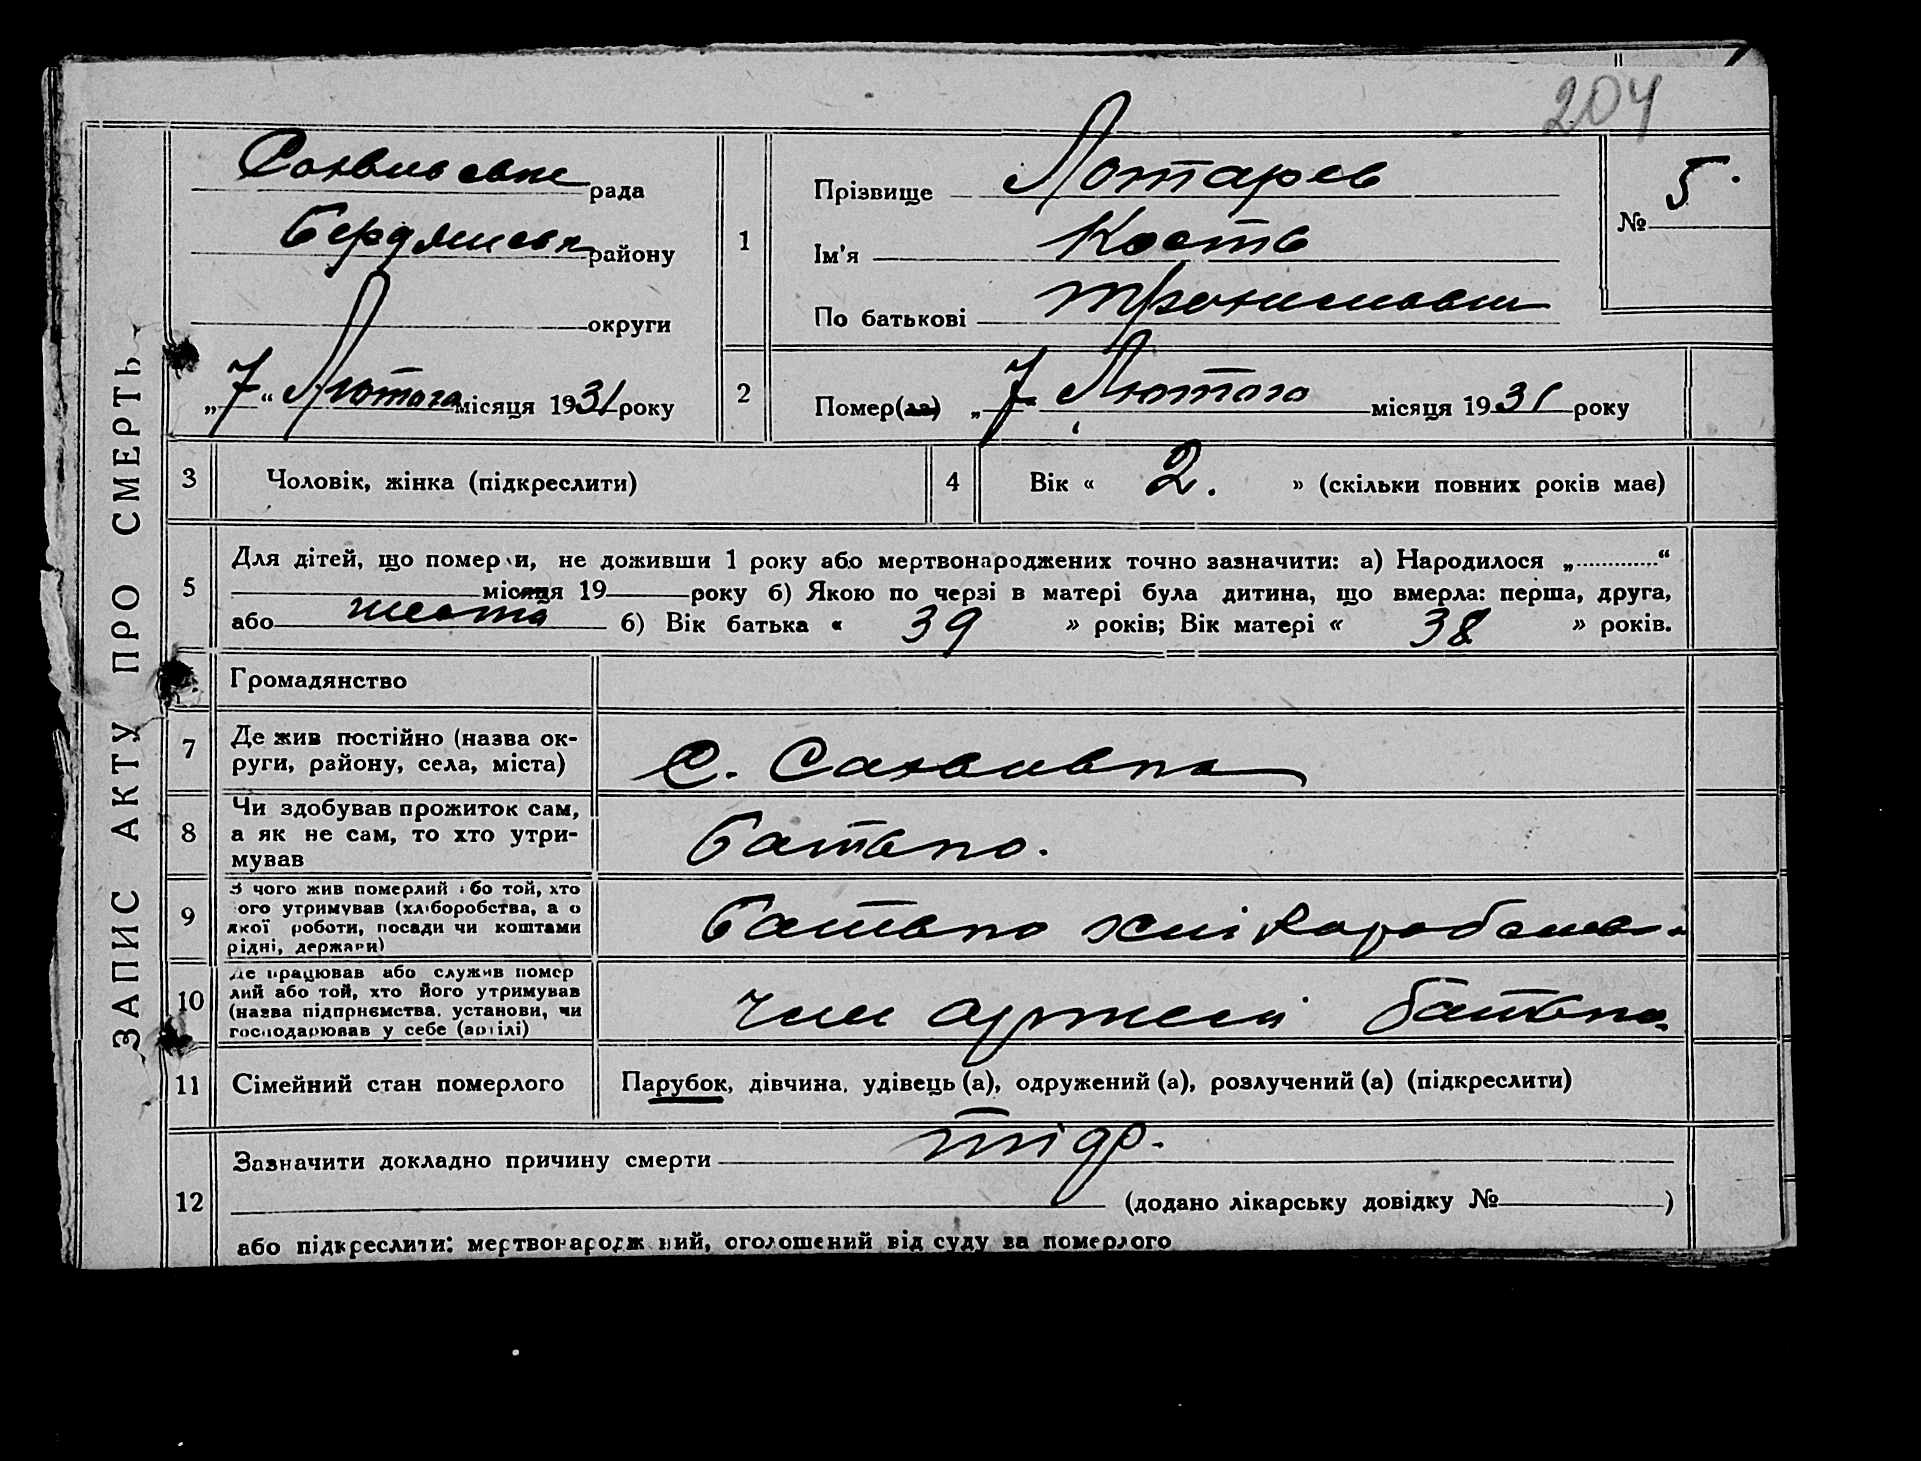 204
ЗАПИС АКТУ ПРО СМЕРТЬ
рада
Бердянськ району
округи
„7“ Лютого місяця 1931 року
1
Прізвище Лотарев
Ім'я Кость
По батькові
№ 5.
2
Помер(ла) „7“ Лютого місяця 1931 року
3
Чоловік, жінка (підкреслити)
4
Вік « 2. » (скільки повних років має)
5
Для дітей, що померли, не доживши 1 року або мертвонароджених точно зазначити: а) Народилося „ “
місяця 19 року б) Якою по черзі в матері була дитина, що вмерла: перша, друга,
або шеста б) Вік батька « 39 » років; Вік матері « 38 » років.
Громадянство
7
Де жив постійно (назва ок-
руги, району, села, міста)
с.
8
Чи здобував прожиток сам,
а як не сам, то хто утри-
мував
батько.
9
З чого жив померлий або той, хто
його утримував (хліборобства, а о
якої роботи, посади чи коштами
рідні, держави)
батько
10
Де працював або служив помер
лий або той, хто його утримував
(назва підприємства, установи, чи
господарював у себе (артілі)
член артели батько
11
Сімейний стан померлого
Парубок, дівчина, удівець (а), одружений (а), розлучений (а) (підкреслити)
12
Зазначити докладно причину смерти
(додано лікарську довідку № )
або підкреслити: мертвонароджений, оголошений від суду за померлого